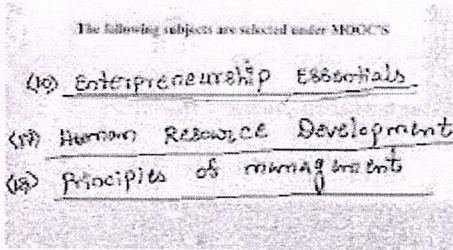 The following subjects are selected under MOOC'S
(10) Enterpreneurship Essentials
(17) Human Resource Development
(18) Principles of managments